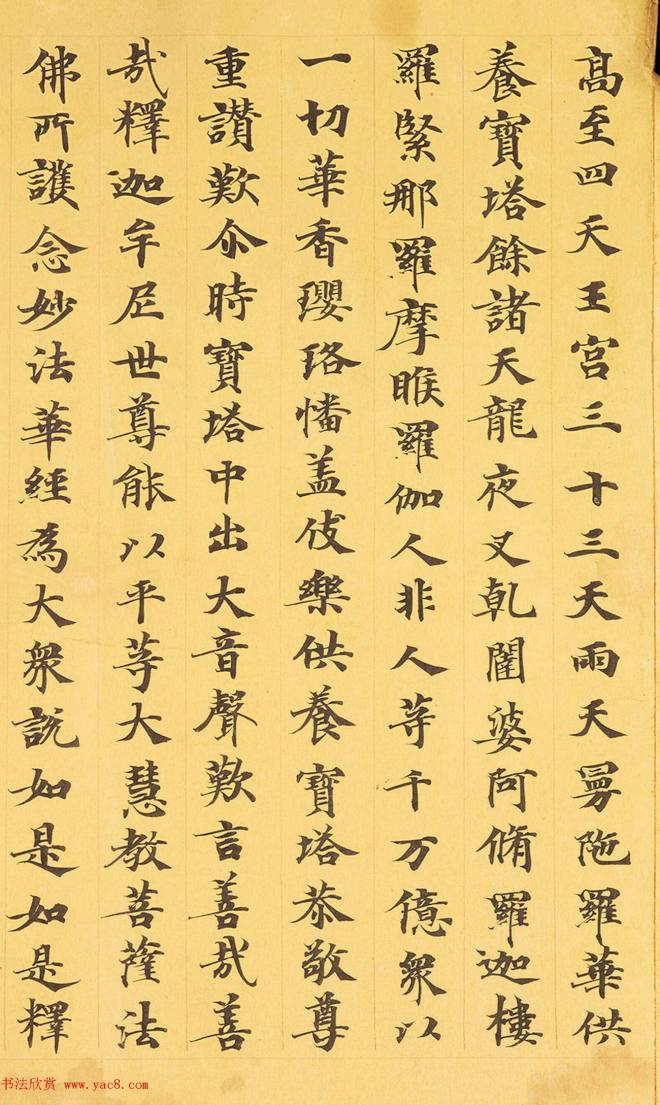 高至四天王宮三十三天雨天曼陁羅華供
養寶塔餘諸天龍夜叉乹闥婆阿脩羅迦樓
羅緊那羅摩睺羅伽人非人等千万億衆以
一切華香瓔珞幡盖伎樂供養寶塔恭敬尊
重讃歎尒時寶塔中出大音聲歎言善哉善
哉釋迦牟尼世尊能以平等大慧教菩薩法
佛所護念妙法華經為大衆説如是如是釋
书法欣赏 www.yac8.com